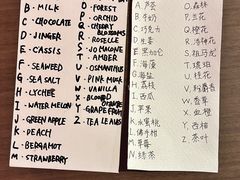 B·MILK
C·CHOCOLATE
D·JINGER
E·CASSIS
F·SEAWEED
G·SEA SALT
H·LYCHEE
I·WATER MELON
J·GREEN APPLE
K·PEACH
L·BERGAMOT
M·STRAWBERRY
O·FOREST
P·ORCHID
Q·CHERRY
BLOSSOMS
R·ROSELLE
S·JO MALONE
T·AMBER
U·OSMANTHUS
V·PINK MUSK
W·VANILLA
X·BLOOD
ORANGE
Y·GRAPEFRUIT
Z·TEA LEAVES
A.芦荟
B.牛奶
C.巧克力
D.生姜
E.黑加仑
F.海藻
G.海盐
H.荔枝
I.西瓜
J.苹果
K.水蜜桃
L.佛手柑
M.草莓
N.绿茶
O.森林
P.兰花
Q.樱花
R.洛神花
T.琥珀
U.桂花
V.粉麝香
W.香草
X.血橙
Y.西柚
Z.茶叶